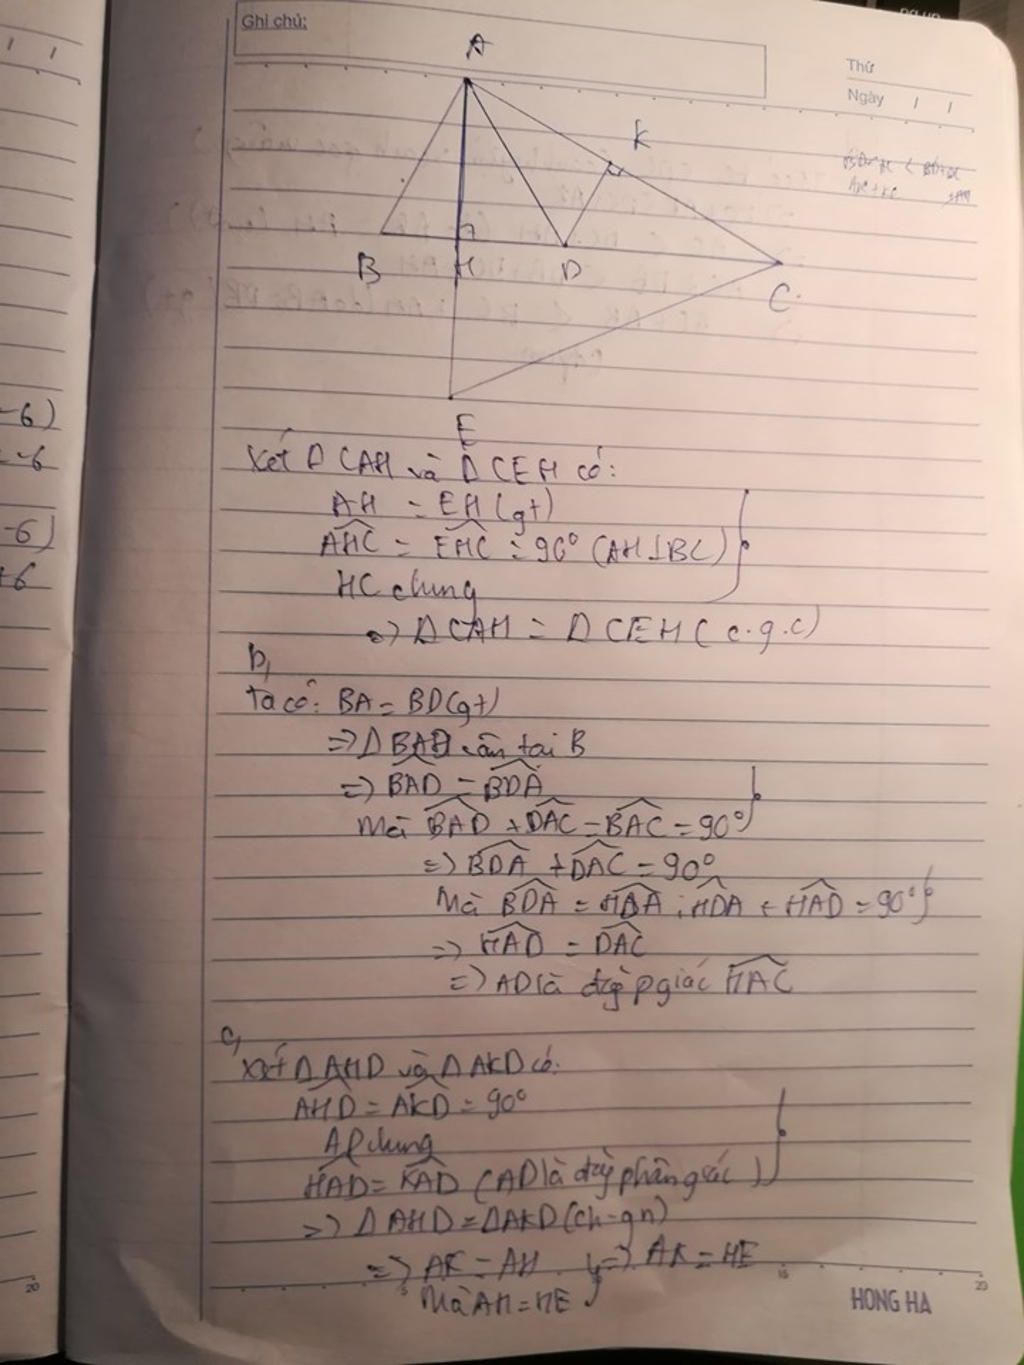 Ghi chú:
Thứ
Ngày / /
A
K
B H D
C
E
Xét Δ CAH và Δ CEH có:
AH = EH (gt)
AHC = EHC = 90° (AH⊥BC)
HC chung
=> Δ CAH = Δ CEH ( c.g.c)
b,
Ta có: BA = BD (gt)
=> Δ BAD cân tại B
=> BAD = BDA
Mà BAD + DAC = BAC = 90°
=> BDA + DAC = 90°
Mà BDA = HDA ; HDA + HAD = 90°
=> HAD = DAC
=> AD là đg p giác HAC
c,
Xét Δ AHD và Δ AKD có:
AHD = AKD = 90°
AD chung
HAD = KAD (AD là đg phân giác)
=> Δ AHD = Δ AKD (ch-gn)
=> AK = AH => AK = HE
Mà AH = HE
5 15 20
HONG HA
-6)
-6
-6)
+6
20